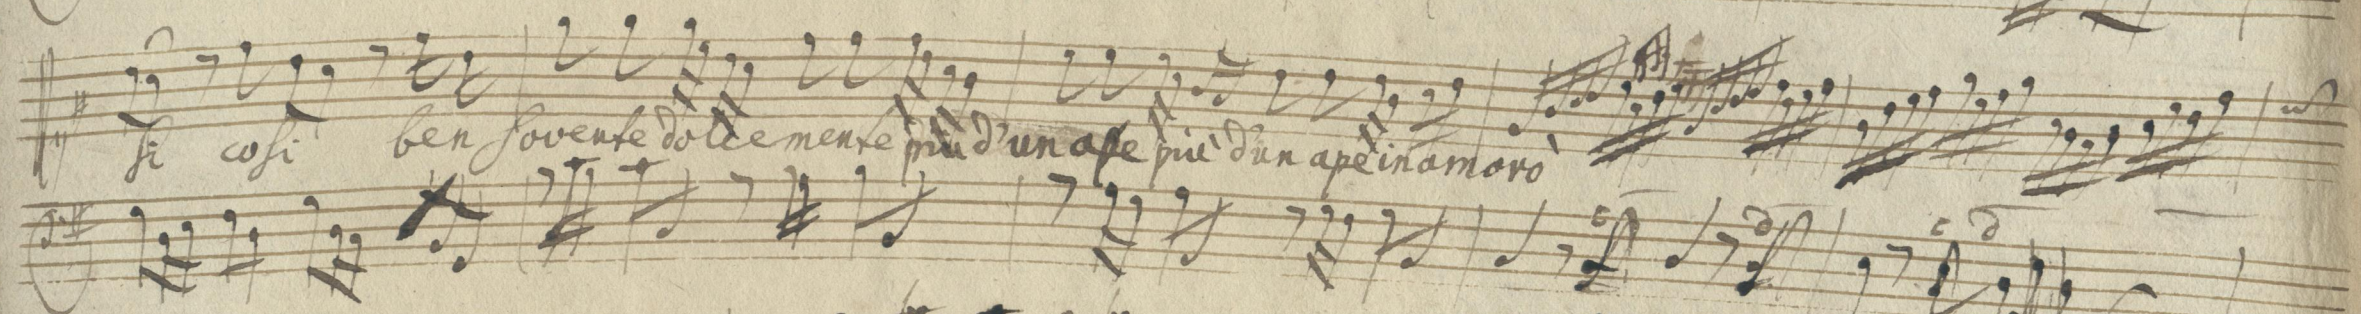 si così ben sovente dolcemente più d'un ape più d'un ape inamorò